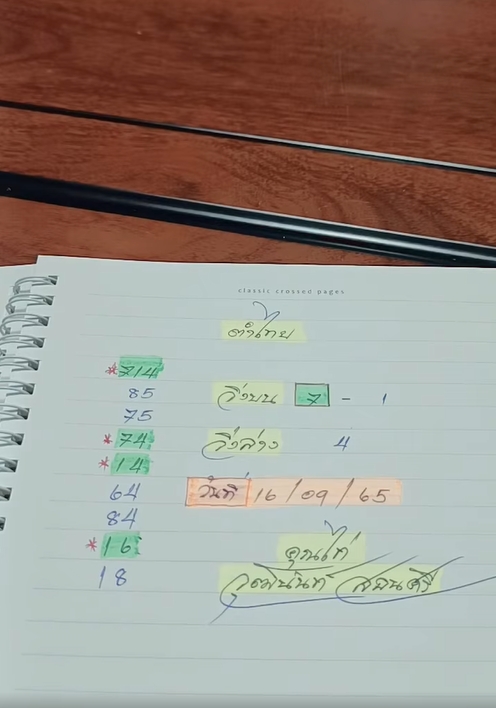 classic crossed pages
ตำไทย
*714
85
วิ่งบน 7 - 1
75
*74
วิ่งล่าง 4
*14
64
วันที่ 16/09/65
84
*16
คุณไก่
18